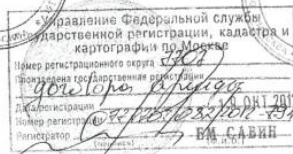 «Управление Федеральной службы
государственной регистрации, кадастра и
картографии по Москве
Номер регистрационного округа
Произведена государственная регистрация
договора аренды
Дата регистрации 19 ОКТ 201
Номер регистрации
Регистратор ЕМ САВИН
(подпись) (Ф.И.О.)